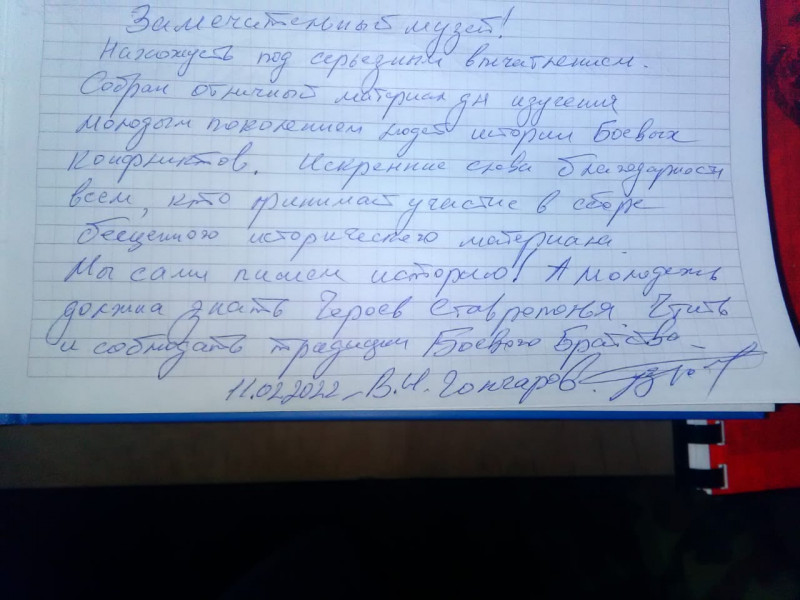 Замечательный музей!
Нахожусь под серьезным впечатлением.
Собран отличный материал для изучения
молодым поколением людей истории Боевых
Конфликтов. Искренние слова благодарности
всем, кто принимал участие в сборе
бесценного исторического материала.
Мы сами пишем историю! А молодежь
должна знать Героев Ставрополья Чтить
и соблюдать традиции Боевого Братства
11.02.2022 В.И. Гончаров.